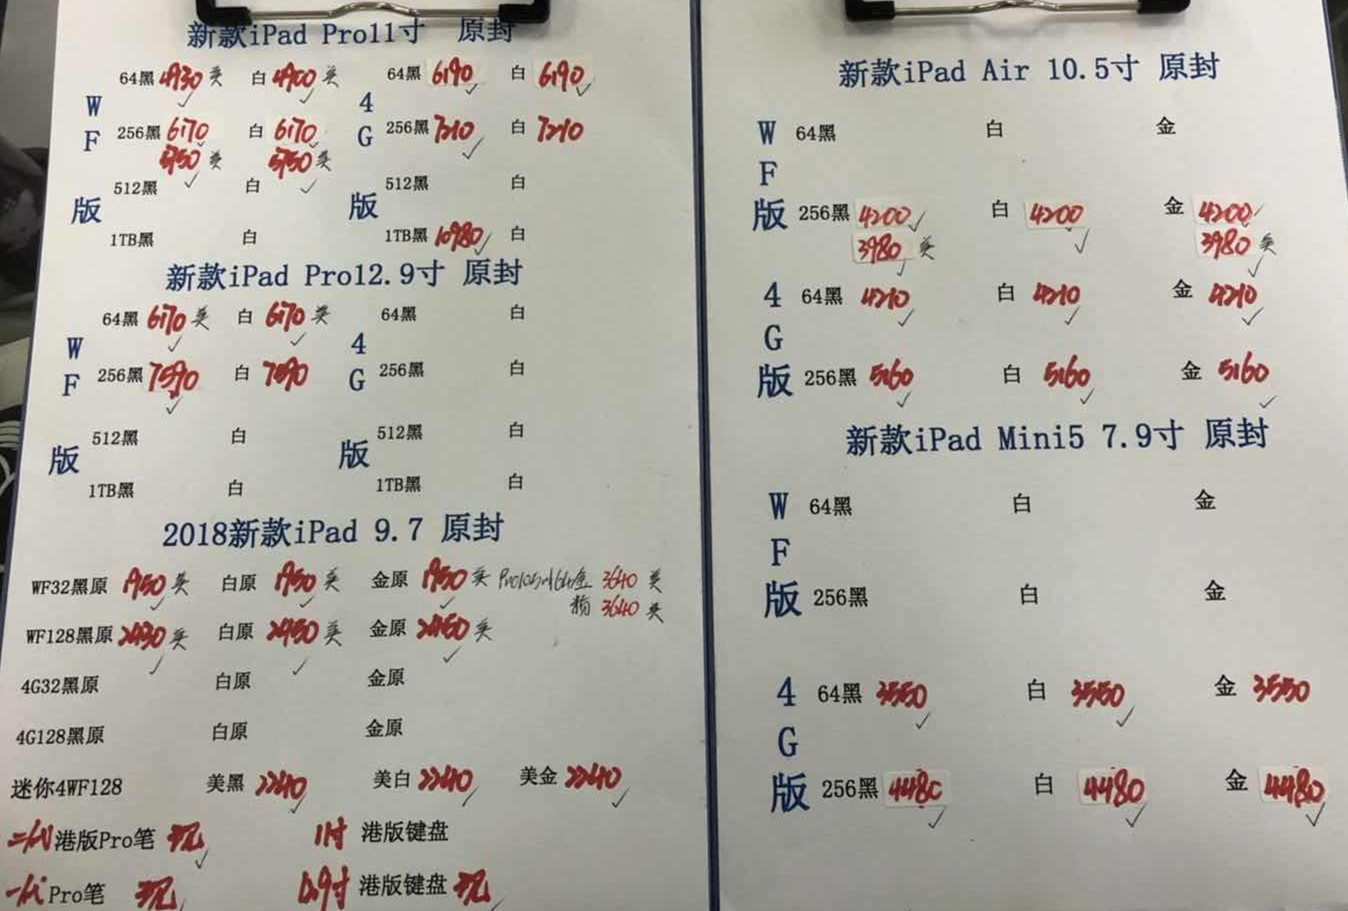 新款iPad Pro11寸 原封
64黑 4930 美 白 4900 美 64黑 6190 白 6190
W 4
F 256黑 6170 白 6170 G 256黑 7210 白 7210
5750 美 5750 美
版 512黑 白 版 512黑 白
1TB黑 白 1TB黑 10980 白
新款iPad Pro12.9寸 原封
64黑 6170 美 白 6170 美 64黑 白
W 4
F 256黑 7590 白 7590 G 256黑 白
版 512黑 白 版 512黑 白
1TB黑 白 1TB黑 白
2018新款iPad 9.7 原封
WF32黑原 1950 美 白原 1950 美 金原 1950 美 3640 美
3640 美
WF128黑原 2430 美 白原 2450 美 金原 2450 美
4G32黑原 白原 金原
4G128黑原 白原 金原
迷你4WF128 美黑 2240 美白 2240 美金 2240
二代 港版Pro笔 现 11寸 港版键盘
一代 Pro笔 现 12.9寸 港版键盘 现
新款iPad Air 10.5寸 原封
W 64黑 白 金
F
版 256黑 4200 白 4200 金 4200
3980 美 3980 美
4 64黑 4210 白 4210 金 4210
G
版 256黑 5160 白 5160 金 5160
新款iPad Mini5 7.9寸 原封
W 64黑 白 金
F
版 256黑 白 金
4 64黑 3550 白 3550 金 3550
G
版 256黑 4480 白 4480 金 4480